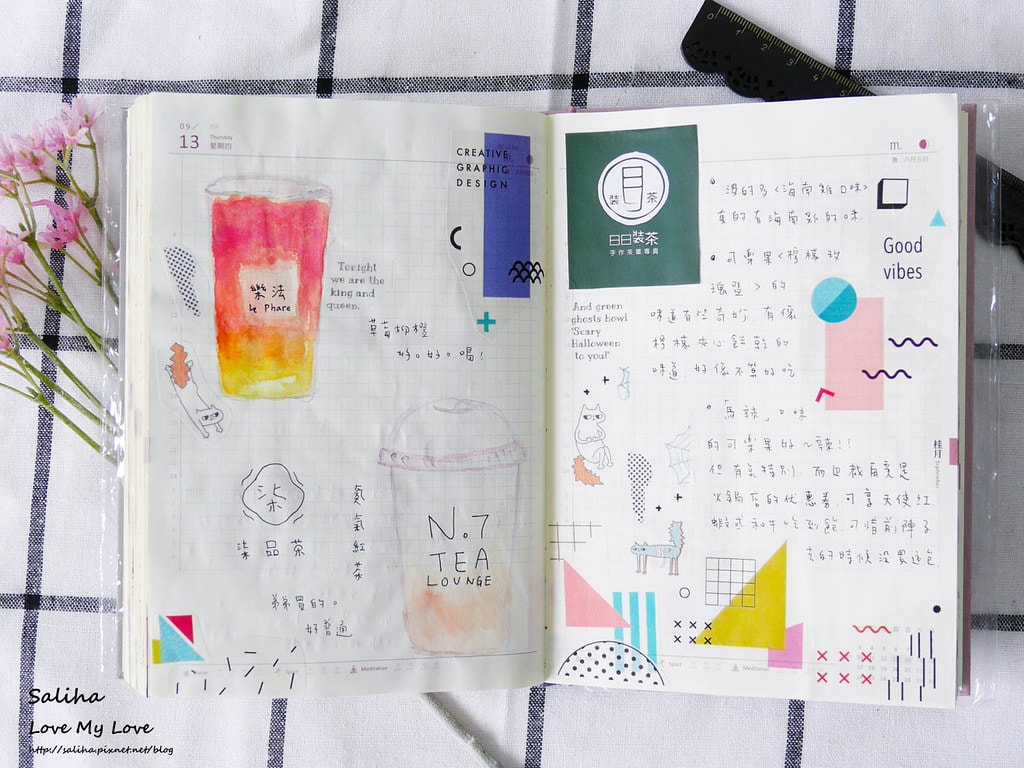 09/
13
Thursday
星期四
CREATIVE
GRAPHIC
DESIGN
樂法
le Phare
Tonight
we are the
king and
queen.
草莓柳橙
好。好。喝!
柒
柒品茶
氮氣紅茶
N.7
TEA
LOUNGE
弟弟買的。
好普通
Meditation
裝茶
日日裝茶
手作茶童專賣
m
農/八月五日
波的多<海南雞口味>
真的有海南雞的味.
可樂果<檸檬玫
瑰鹽>的
味道有些奇妙.有像
檸檬夾心餅乾的
味道.好像不算好吃
And green
ghosts howl
"Scary
Halloween
to you!"
Good
vibes
"馬辣"口味
的可樂果好~辣!!
但有氣特別 而
火鍋店的優惠券.可享天使紅
蝦或和牛吃到飽.可惜前陣子
去的時候沒
桂月
September
Sport
Meditation
0 1 2 3 4
Saliha
Love My Love
http://saliha.pixnet.net/blog